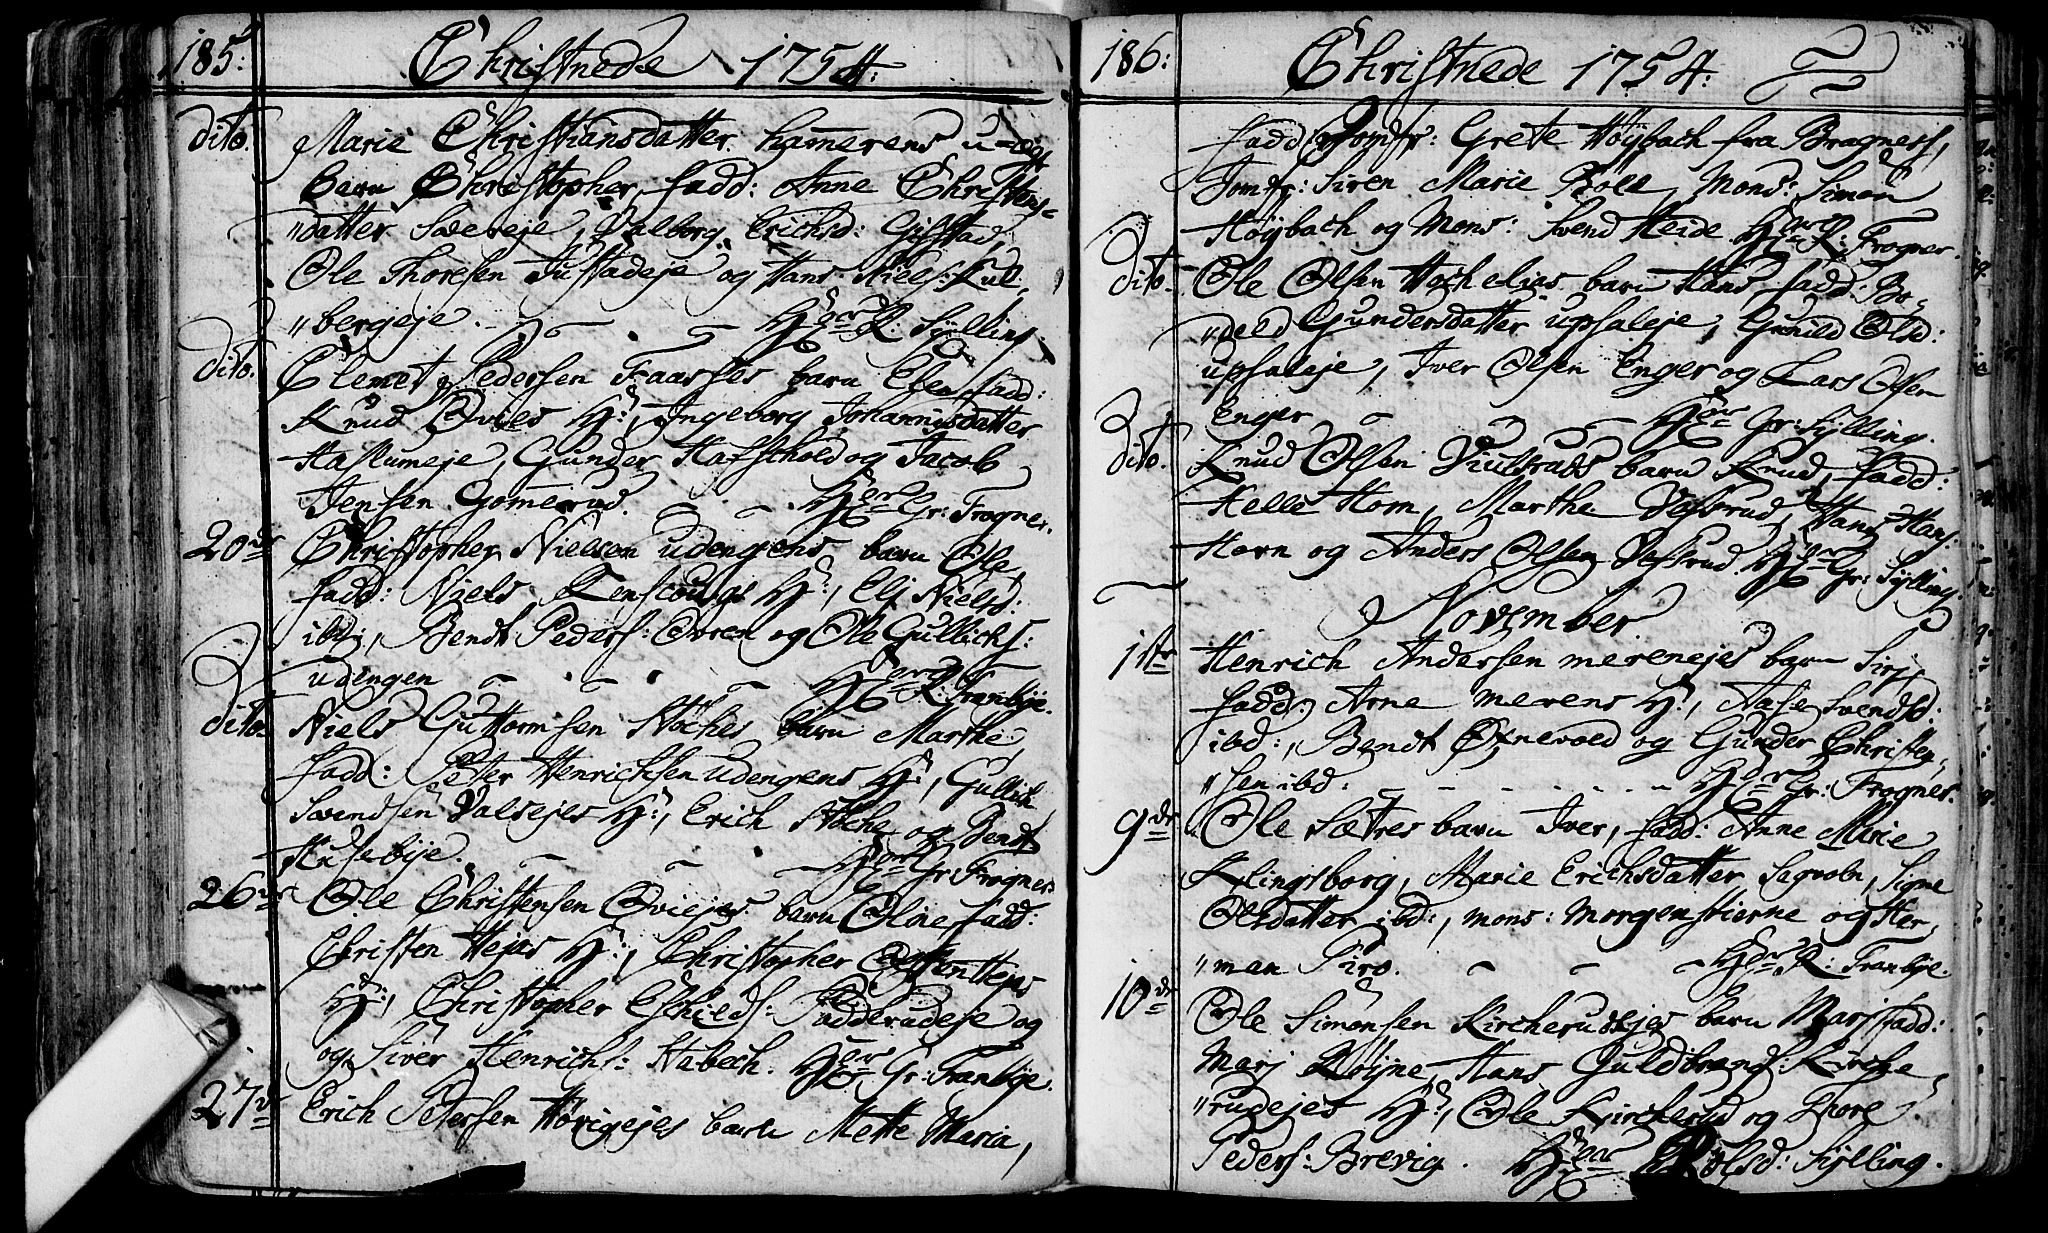 185: Christnede 1754:
dito. Marie Christiansdatter hammerens u-ægt
barn Christopher, fadd: Anne Christens-
"datter Soereje, Valborg Erichsd: Gifstad,
Ole Thoresen Justadeje og Hans Niels: Kul,
"bergeje. Hr R: Sylling
dito. Clemet Pedersen Faarses barn Elen fadd:
Knud Qviles H:, Ingeborg Johannisdatter
Haslumeje, Gunder Hafshold og Jacob
Jensen Gomerud. Hr Gr: Frogner.
20de Christopher Nielsen udengens barn Ole,
fadd: Niels H:, Eli Nielsd:
ibd:, Bendt Peders: Ovren og Ole Gullichs:
udengen R: Tranbye.
dito. Niels Guttormsen Støches barn Marthe
fadd: Peter Henrichsen udengens H:, Gullich
Svendsen Valsejes H:, Erich Støche og Bendt
Husebye. Gr: Frogner
26de Ole Christensen Qviejes barn Oline fadd:
Christen Hejas H:, Christopher Hejas
H:, Christopher Eschilds: Fodderudeje og
og Siver Henrichs: Stabech. Gr: Tranbye.
27de Erich Petersen Hørigejes barn Mette Maria,
186: Christnede 1754:
fadd Jomfr: Grete Høybach fra Bragness,
Jomfr: Siren Marie Bøll, Mons: Simon
Høybach og Mons: Svend Heide R: Frogner.
dito. Ole Olsen Hechelias barn Hans, fadd: Bo-
"deld Gundersdatter upsaleje, Gunild Olsd:
upsaleje, Iver Olsen Enger og Lars Olsen
Enger, Gr: Sylling.
dito. Knud Olsen Viulsruds barn Knud, fadd:
Helle Horn, Marthe Vefsrud, Hans Hans:
Horn og Anders Olsen Vefsrud Gr: Sylling.
November
1ste Henrich Andersen merenejes barn Siri,
fadd: Arne merens H:, Aase Svendsd:
ibd:, Bendt Øxnevold og Gunder Christen,
"sen ibd. Gr: Frogner.
9de Ole Sætres barn Iver, fadd: Anne Marie
Klingsborg, Marie Erichsdatter Sagvoln, Signe
Olsdatter ibd:, mons: Morgenstierne og Her,
"man Piro. R: Tranbye.
10de Ole Simonsen Kircherudejes barn Marj fadd:
Marj Røyne Hans Guldbrands: Kirche,
"rudejes H:, Ole Kircherud og Thore
Peders: Brevig. Sylling.